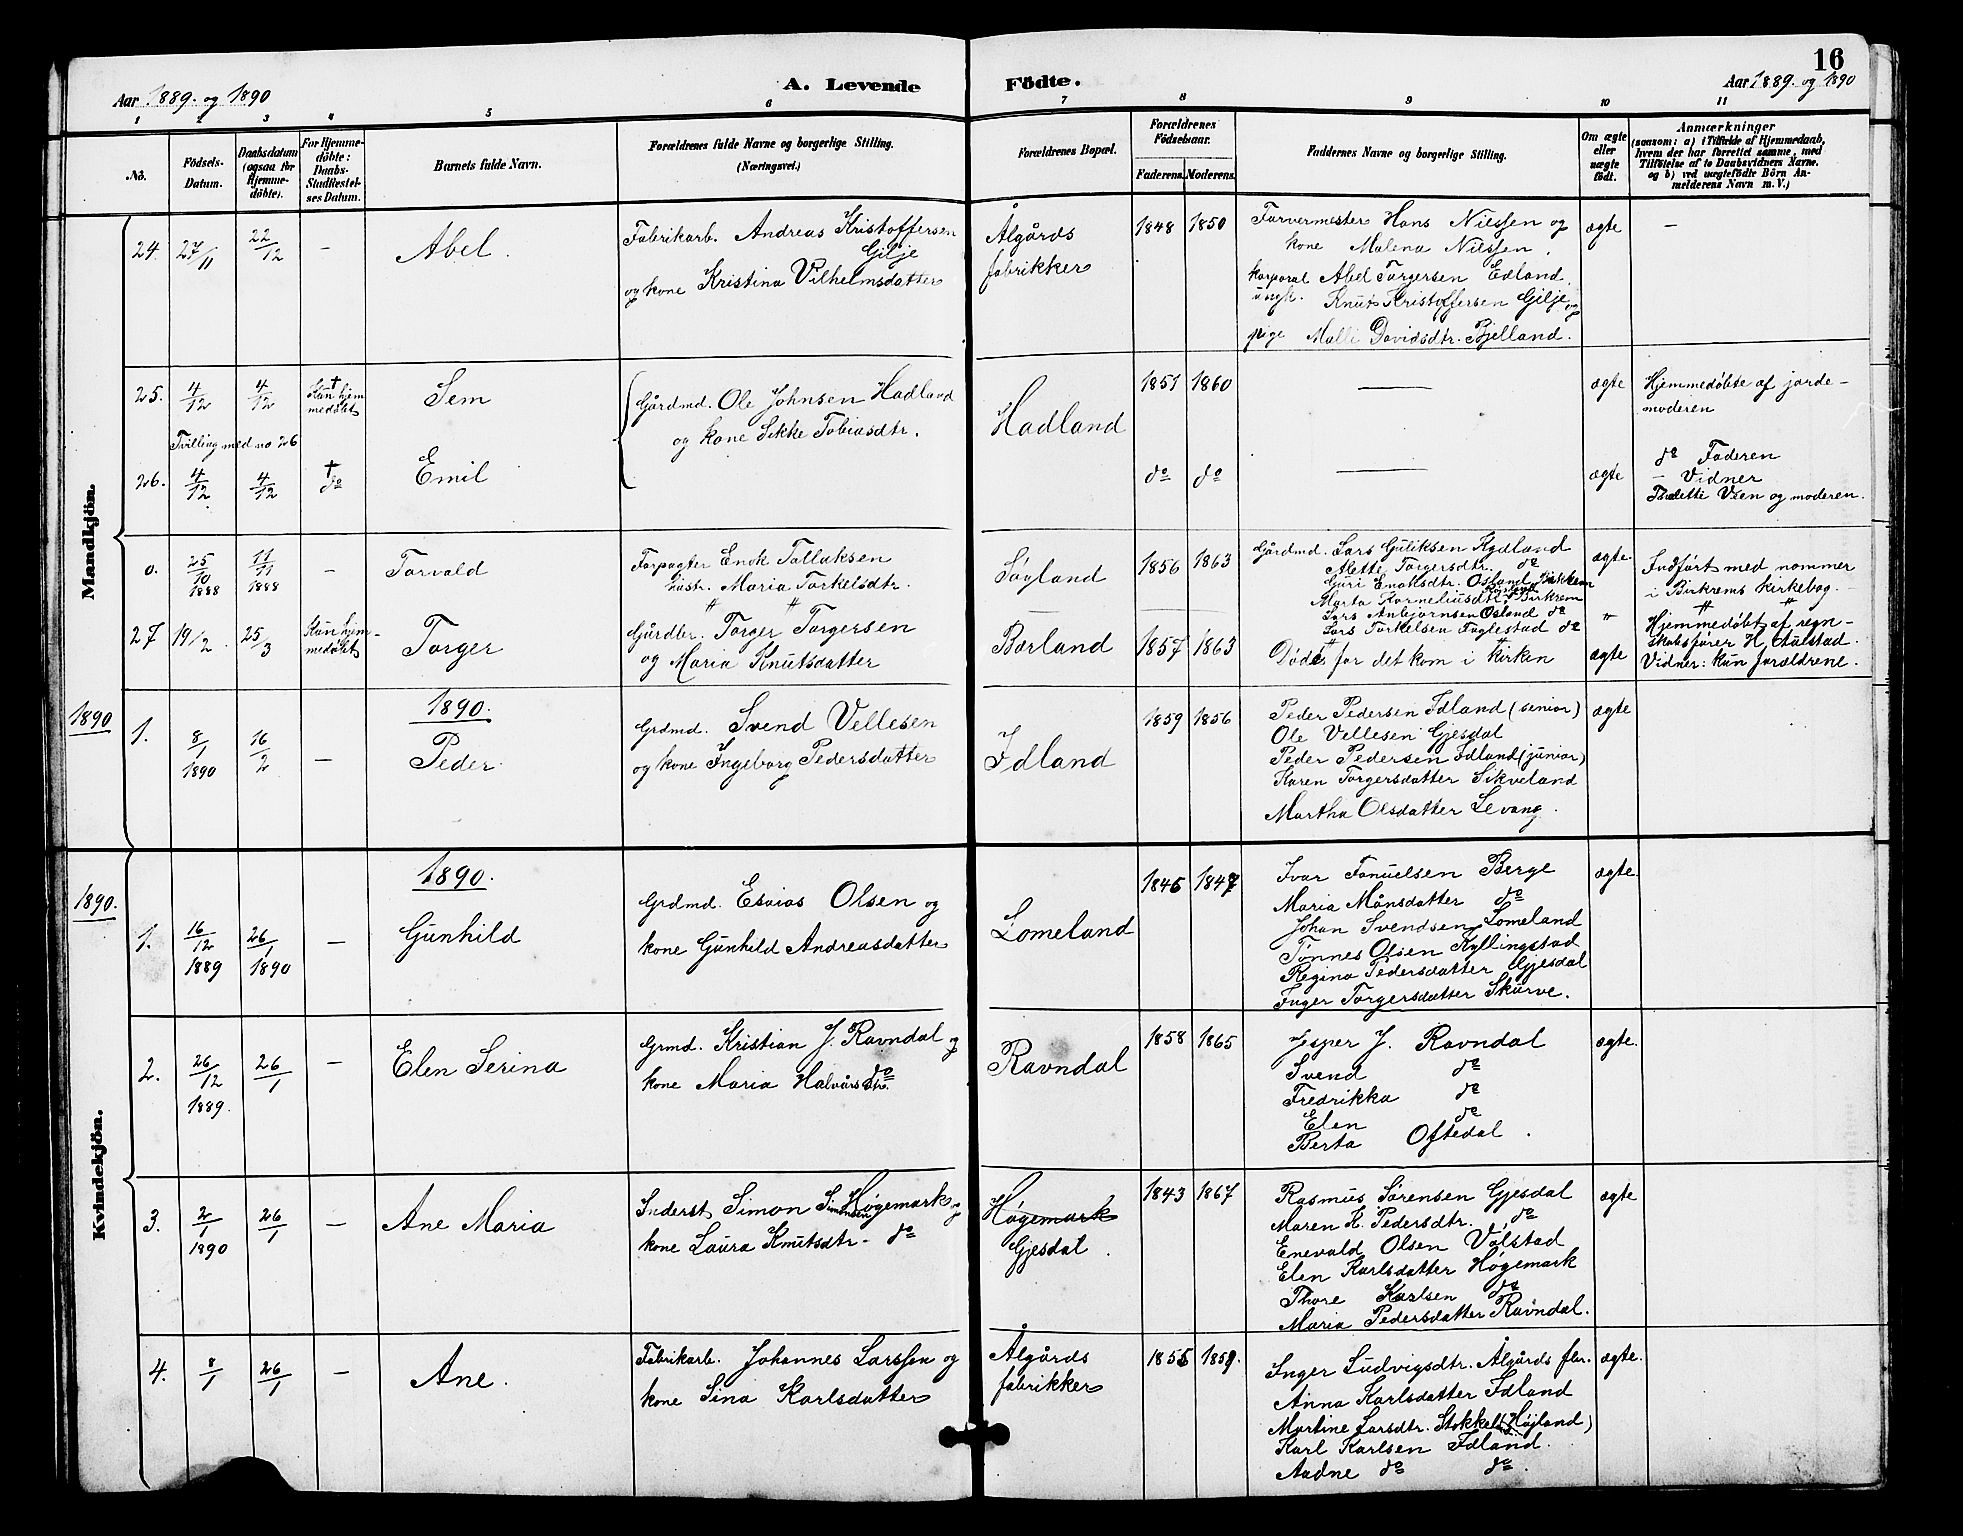 16
Aar 1889. og 1890
A. Levende Födte.
Aar 1889. og 1890
1 2 3 4 5 6 7 8 9 10 11
No.
Födsels-Datum.
Daabsdatum (ogsaa for Hjemme-döbte).
For Hjemme-döbte: Daabs-Stadfæstel-ses Datum.
Barnets fulde Navn.
Forældrenes fulde Navne og borgerlige Stilling. (Næringsvei.)
Forældrenes Bopæl.
Forældrenes Födselsaar.
Faderens. Moderens.
Faddernes Navne og borgerlige Stilling.
Om ægte eller uægte födt.
Anmærkninger
(saasom: a) i Tilfælde af Hjemmedaab,
hvem der har forrettet samme, med
Tilföielse af to Daabsvidners Navne.
og b) ved uægtefödte Börn An-
melderens Navn m. V.)
Mandkjön.
24. 27/11 22/12 – Abel.
Fabrikarb. Andreas Kristoffersen
Gilje
og kone Kristina Vilhelmsdatter
Ålgårds
fabrikker
1848 1850
Farvermester Hans Nielsen og
kone Malena Nielsen,
korporal Abel Torgersen Edland.
ungk. Knut Kristoffersen Gilje og
pige Malli Davidsdtr. Bjelland.
ægte –
25. 4/12 4/12 † Kun hjem
medøbt
Sem
Gårdmd. Ole Johnsen Hadland
og kone Sikke Tobiasdtr.
Hadland
1851 1860 — ægte
Hjemmedøbte af jorde-
moderen
Tvilling med no 26
26. 4/12 4/12 † do Emil
do do — ægte
do Faderen
– Vidner
Veen og moderen.
0. 25/10 1888 11/11 1888 – Torvald
Forpagter Enok Tollaksen
hustr. Maria Torkelsdtr.
Søyland
1856 1863
Gårdmd. Lars Guliksen Kydland
Mette Torgersdtr. do
Guri Enoksdtr. Osland Birkrem
Marta Korneliusdtr. Birkrem
Lars Anbjørnsen Osland do
Lars Torkelsen Faglestad do
ægte.
Indført med nommer
i Birkrems kirkebog.
27 19/2. 25/3 Kun hjem-
medøbt
Torger
Gårdbr. Torger Torgersen
og Maria Knutsdatter
Børland
1857 1863
Døde før det kom i kirken
ægte
Hjemmedøbt af regn-
skabsfører H. Aulstad.
Vidner: kun forældrene.
1890
1890.
1. 8/1 1890 16/2 – Peder
Grdmd. Svend Vellesen
og kone Ingeborg Pedersdatter
Idland
1859 1856
Peder Pedersen Idland (senior)
Ole Vellesen Gjesdal
Peder Pedersen Idland (junior)
Karen Torgersdatter Sikveland
Martha Olsdatter Levang.
ægte
1890.
Kvindekjön.
1890.
1. 16/12 1889 26/1 1890 – Gunhild
Grdmd. Esaias Olsen og
kone Gunhild Andreasdatter
Lomeland
1846 1847
Ivar Fanuelsen Berge
Maria Månsdatter do
Johan Svendsen Lomeland
Tønnes Olsen Kyllingstad
Regina Pedersdatter Gjesdal
Inger Torgersdatter Skurve.
ægte.
2. 26/12 1889. 26/1 – Elen Serina
Grmd. Kristian J. Ravndal og
kone Maria Halvårsdtr. do
Ravndal
1858 1865
Jesper J. Ravndal
Svend do
Fredrikka do
Elen do
Berta Oftedal.
ægte.
3. 2/1 1890 26/1 – Ane Maria
Inderst Simon Simonsen Høgemark og
kone Laura Knutsdtr. do
Høgemark
Gjesdal.
1843 1867
Rasmus Sørensen Gjesdal
Maren K. Pedersdtr. do
Enevald Olsen Vølstad
Elen Karlsdatter Høgemark
Thore Karlsen do
Maria Pedersdatter Ravndal.
ægte
4. 8/1 26/1 – Ane.
Fabrikarb. Johannes Larssen og
kone Sina Karlsdatter
Ålgårds
fabrikker
1855 1859.
Inger Ludvigsdtr. Ålgårds fbr.
Anna Karlsdatter Idland
Martine Larsdtr. (Højland)
Karl Karlsen Idland.
Aadne do do
ægte.